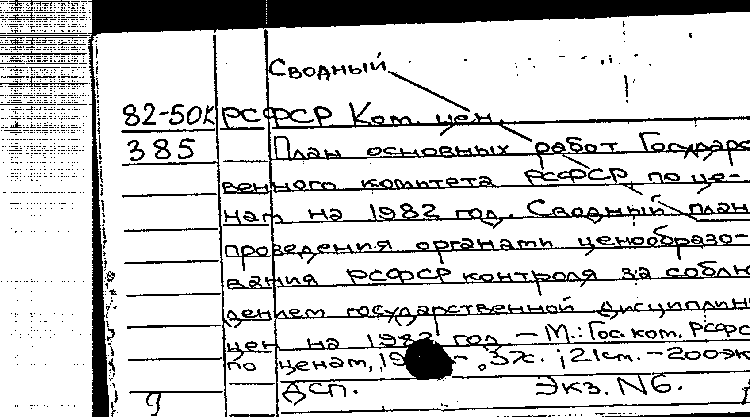 Сводный
82-50К РСФСР Ком. цен.
385 План основных работ Государс
венного комитета РСФСР по це-
нам на 1982 год. Сводный план
проведения органами ценообразо-
вания РСФСР контроля за соблю
дением государственной дисциплин
цен на 1982 год. – М.: Гос. ком. РСФС
по ценам, 19 3ж. ; 21 см. – 200 эк
ДСП. Экз. N6.
9